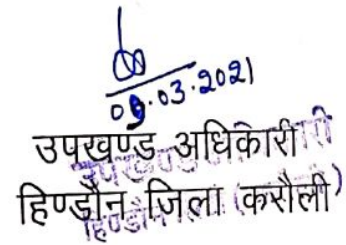 09.03.2021
उपखण्ड अधिकारी
हिण्डौन जिला करौली